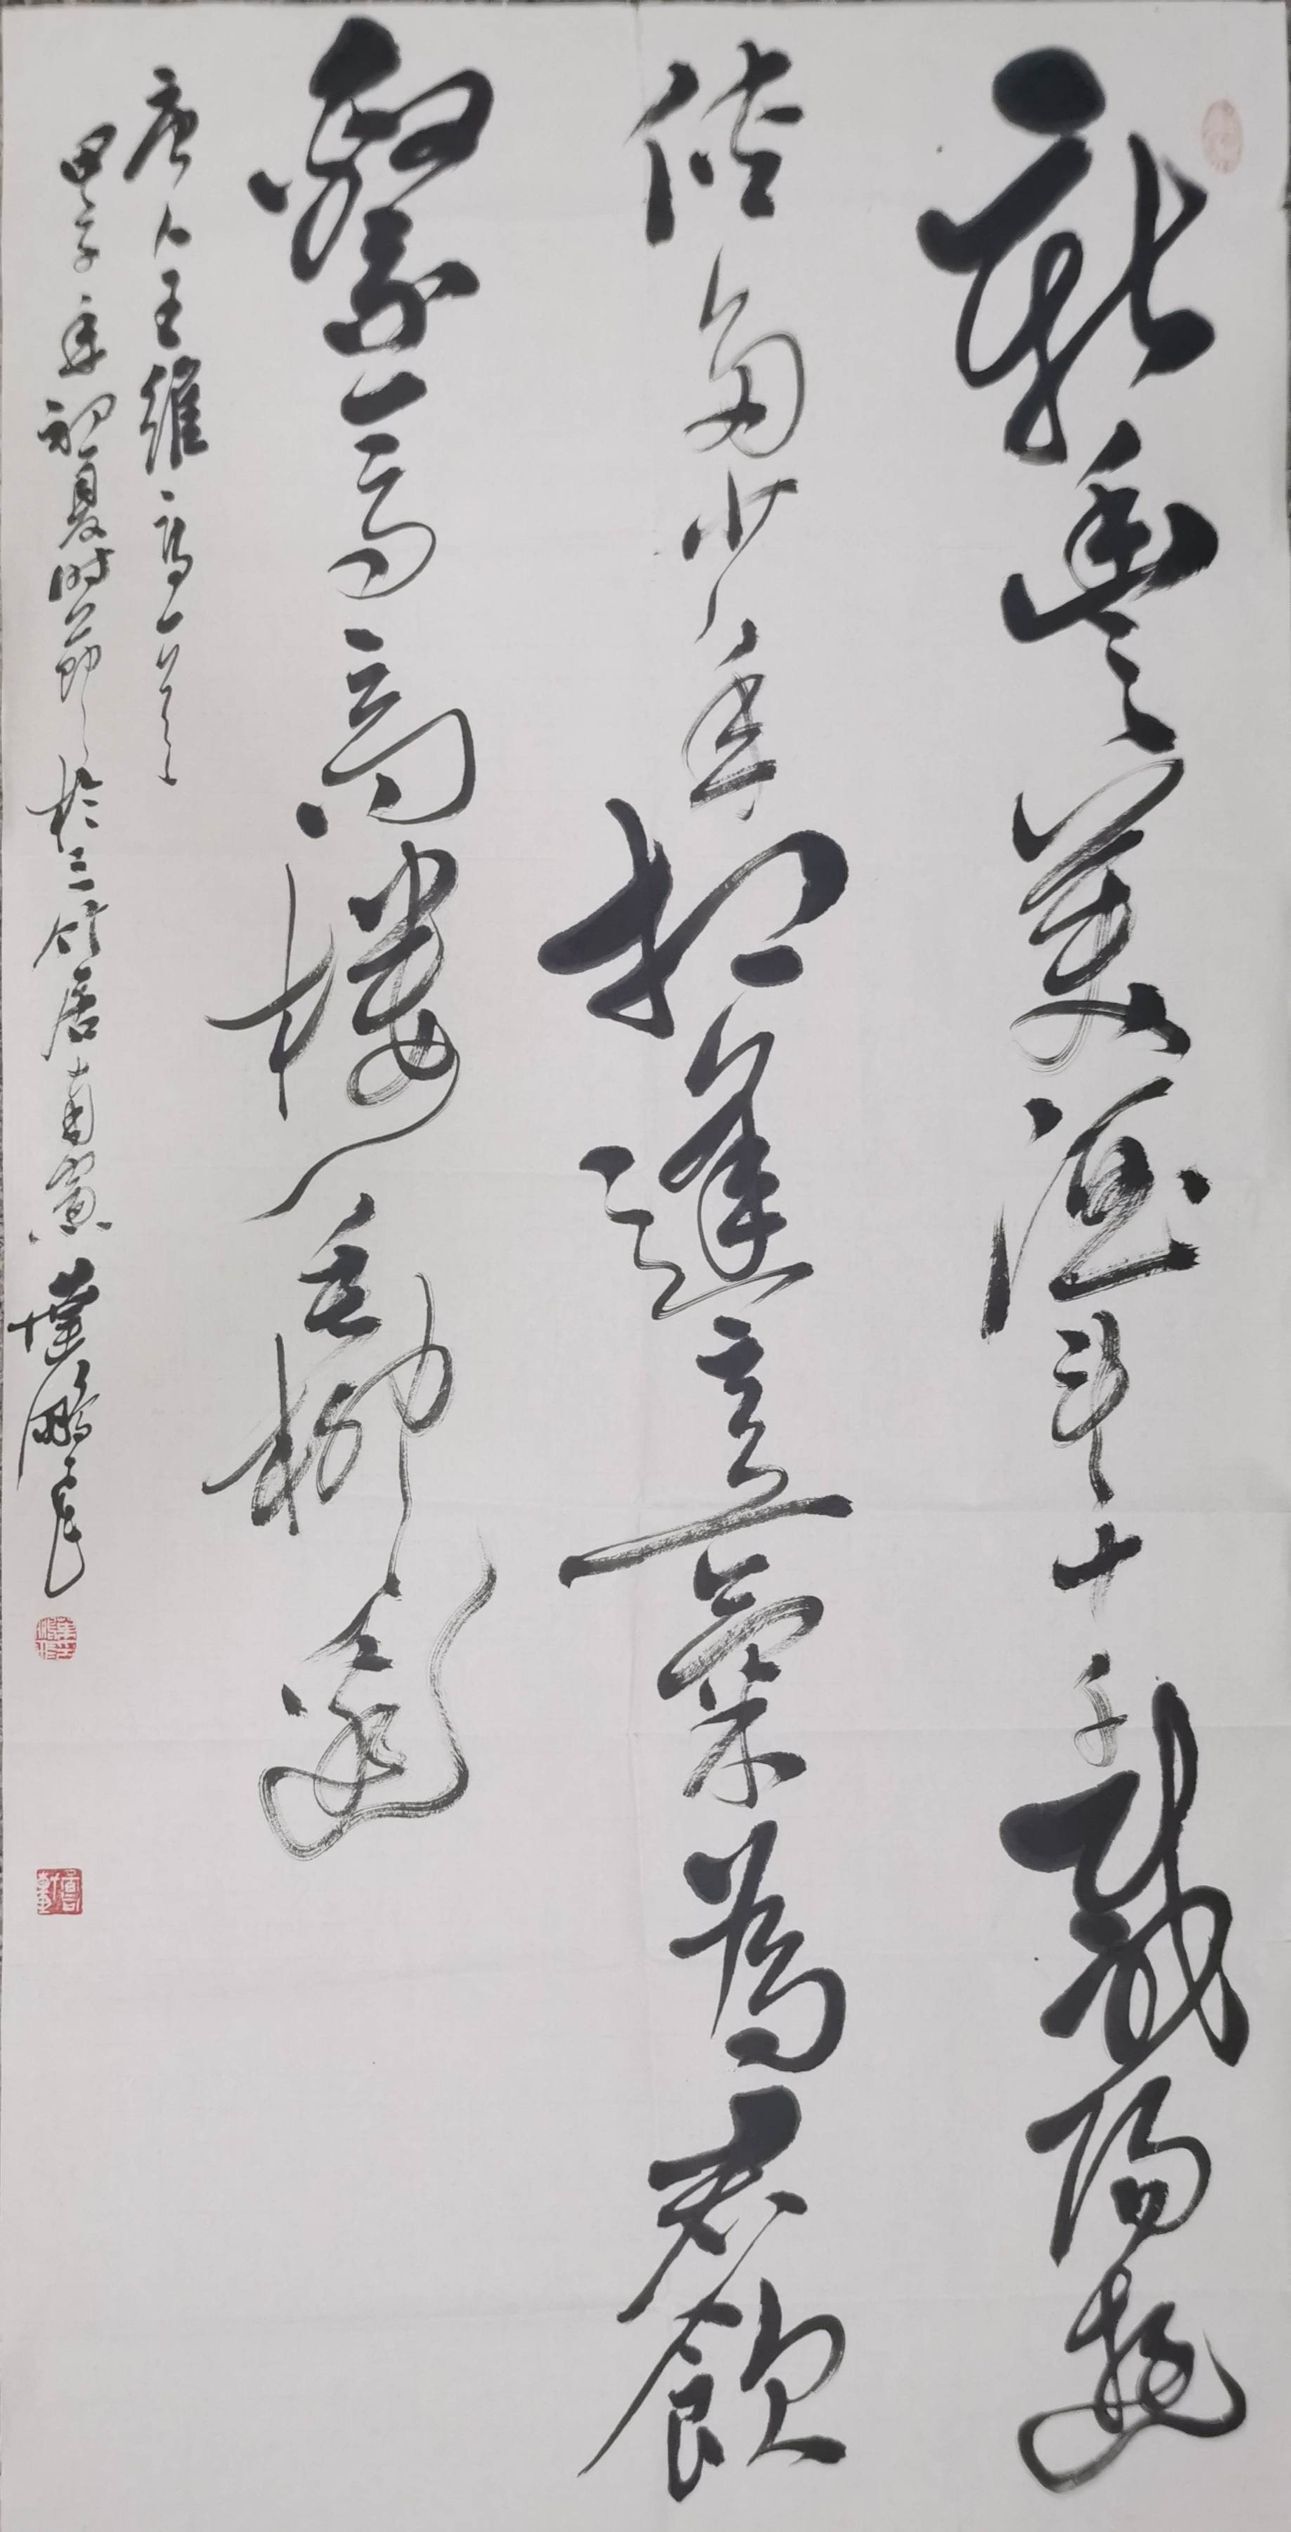 新豐美酒斗十千咸陽遊
俠多少年相逢意氣為君飲
繫馬高樓垂柳邊
唐人王維詩一首
甲辰年初夏時節於三竹居南窗葉鵬飛